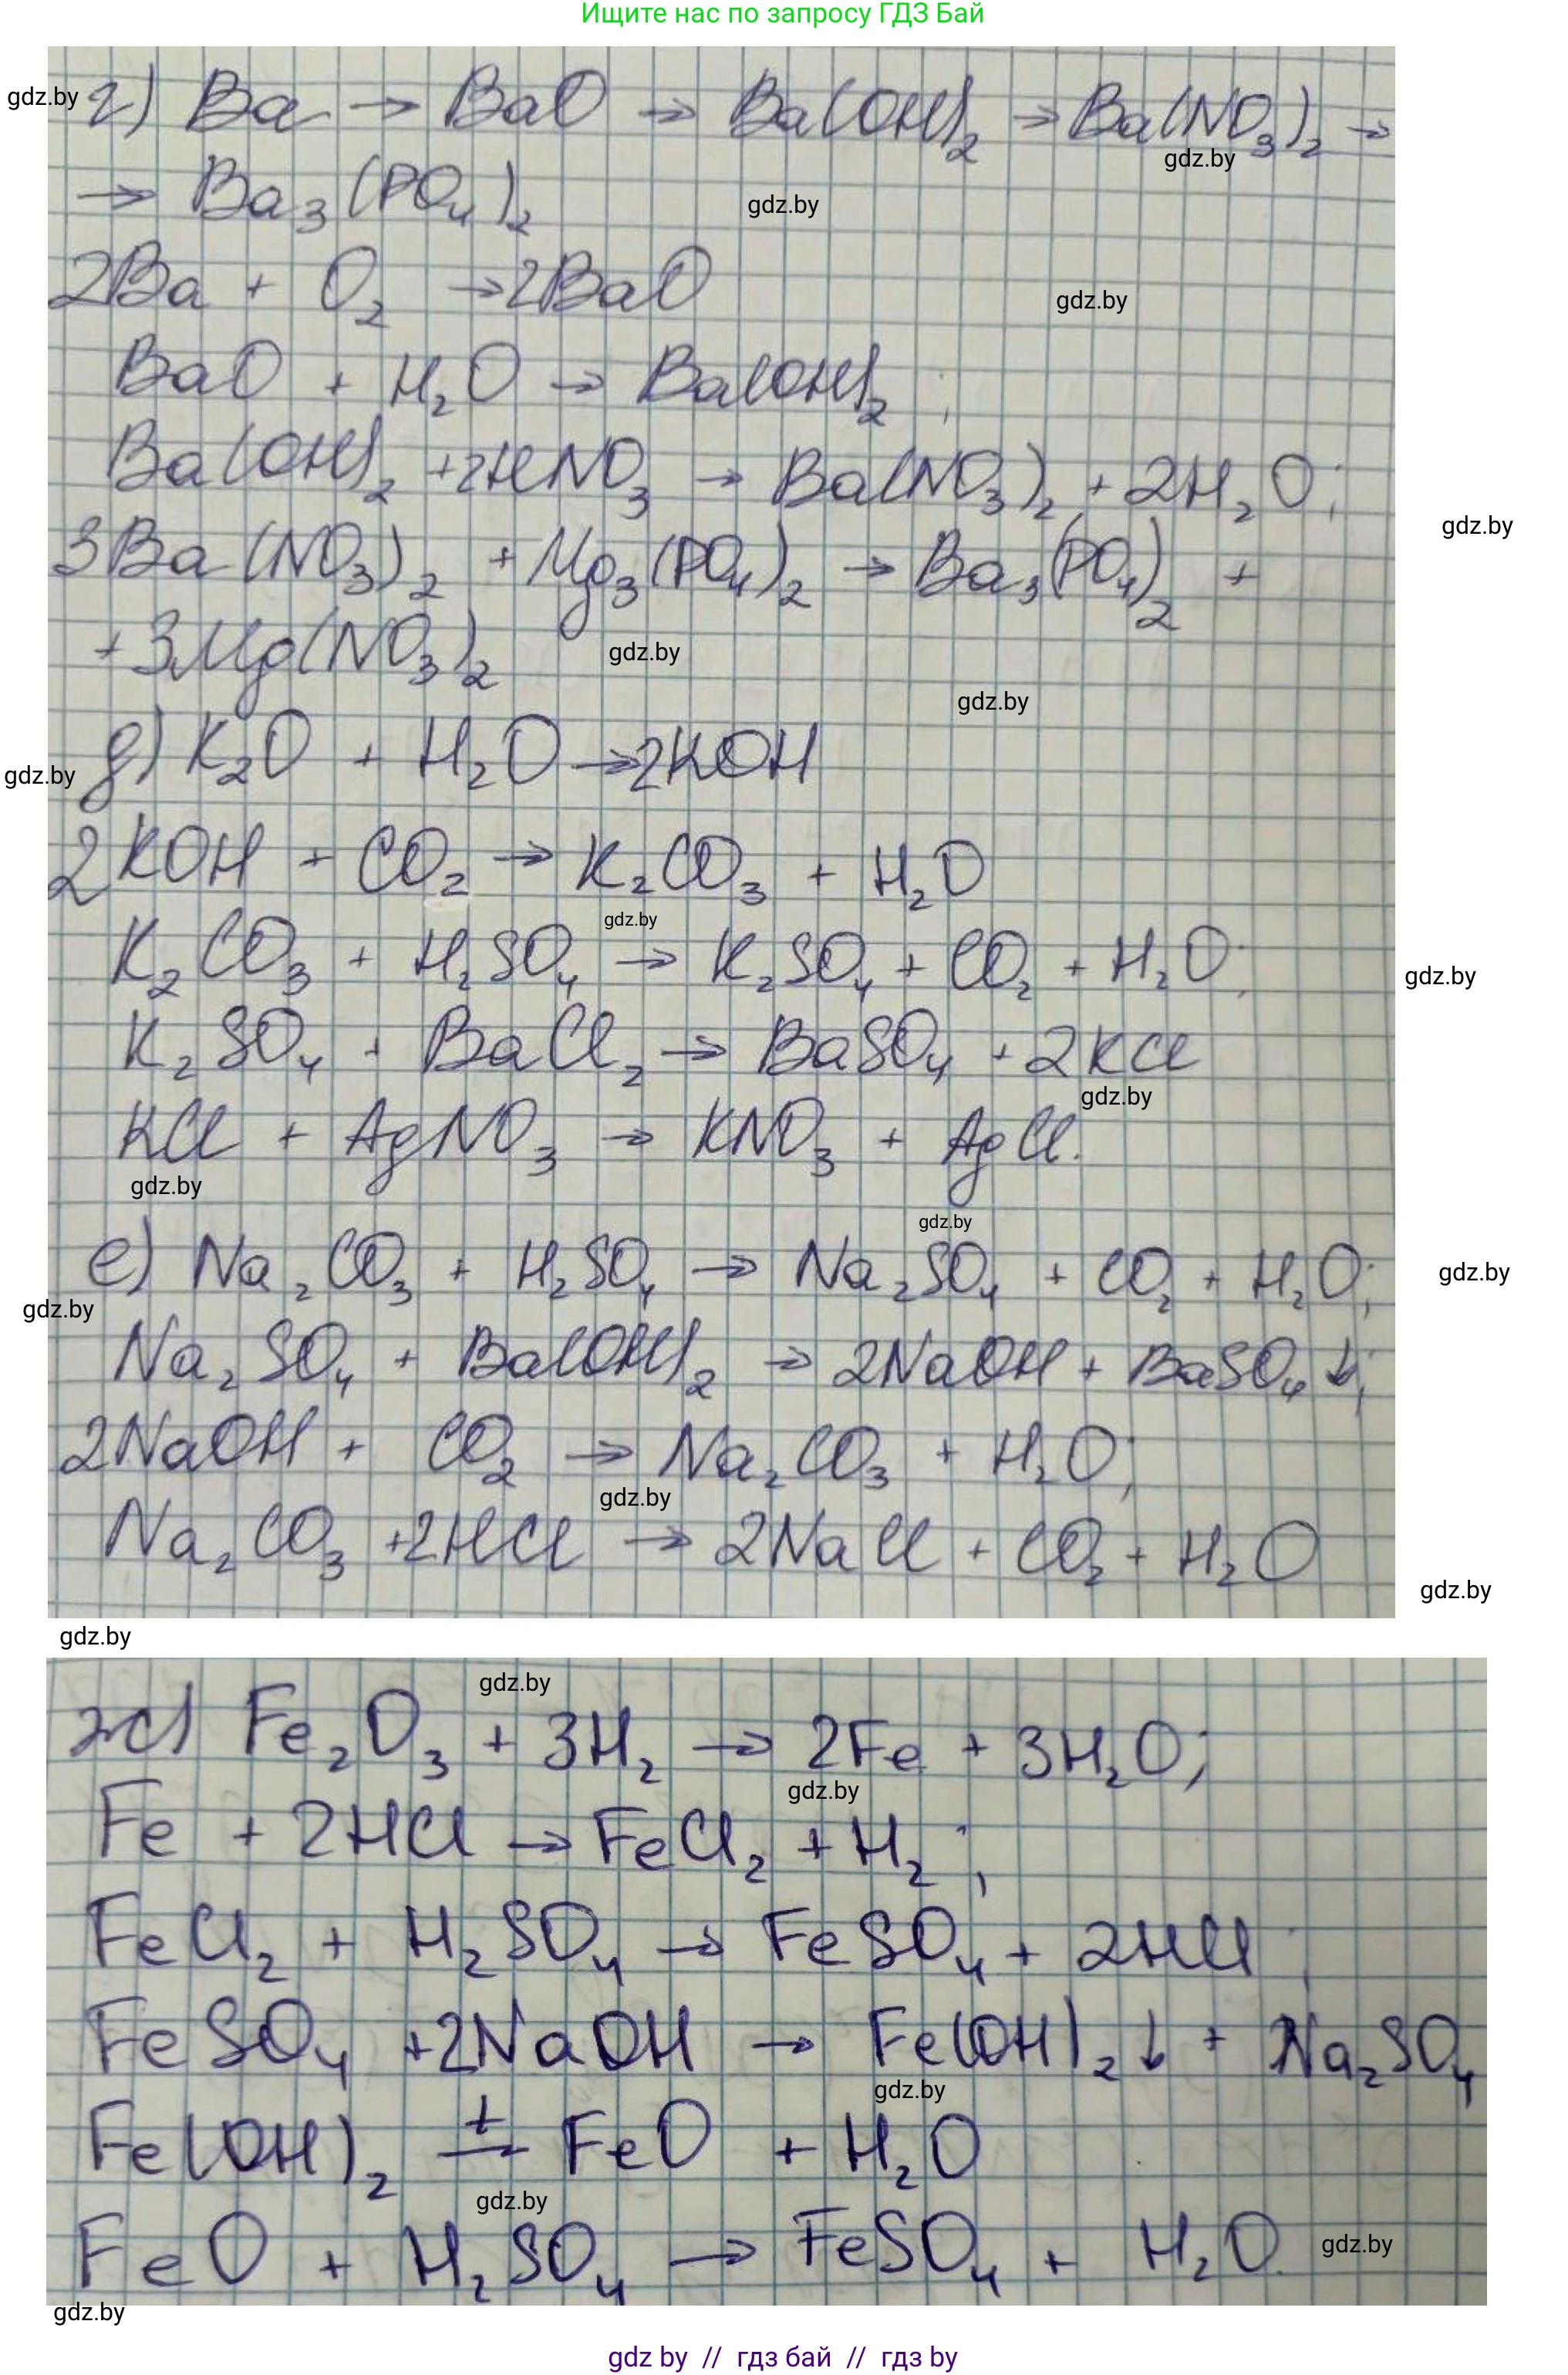 Ищите нас по запросу ГДЗ Бай
gdz.by
г) Ba → BaO → Ba(OH)₂ → Ba(NO₃)₂ →
gdz.by
→ Ba₃(PO₄)₂
gdz.by
2Ba + O₂ → 2BaO
gdz.by
BaO + H₂O → Ba(OH)₂ ;
Ba(OH)₂ + 2HNO₃ → Ba(NO₃)₂ + 2H₂O;
gdz.by
3Ba(NO₃)₂ + Mg₃(PO₄)₂ → Ba₃(PO₄)₂ +
+ 3Mg(NO₃)₂
gdz.by
gdz.by
д) K₂O + H₂O → 2KOH
gdz.by
2KOH + CO₂ → K₂CO₃ + H₂O
gdz.by
K₂CO₃ + H₂SO₄ → K₂SO₄ + CO₂ + H₂O;
gdz.by
K₂SO₄ + BaCl₂ → BaSO₄ + 2KCl
gdz.by
KCl + AgNO₃ → KNO₃ + AgCl.
gdz.by
gdz.by
е) Na₂CO₃ + H₂SO₄ → Na₂SO₄ + CO₂ + H₂O;
gdz.by
gdz.by
Na₂SO₄ + Ba(OH)₂ → 2NaOH + BaSO₄↓;
2NaOH + CO₂ → Na₂CO₃ + H₂O;
gdz.by
Na₂CO₃ + 2HCl → 2NaCl + CO₂ + H₂O
gdz.by
gdz.by
gdz.by
ж) Fe₂O₃ + 3H₂ → 2Fe + 3H₂O;
gdz.by
Fe + 2HCl → FeCl₂ + H₂ ;
FeCl₂ + H₂SO₄ → FeSO₄ + 2HCl ;
FeSO₄ + 2NaOH → Fe(OH)₂↓ + Na₂SO₄
gdz.by
Fe(OH)₂ →ᵗ FeO + H₂O
gdz.by
FeO + H₂SO₄ → FeSO₄ + H₂O.
gdz.by
gdz.by
gdz by // гдз бай // гдз by